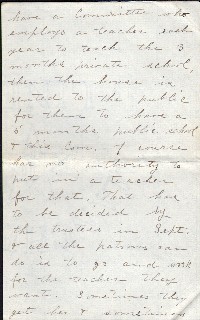 have a Committee who
employs a teacher each
year to teach the 3
months private school,
then the house is
rented to the public
for them to have a
6 months public school
& this Com. of course
has no authority to
put in a teacher
for that, That has
to be decided by
the trustees in Sept.
& all the patrons can
do is to go and work
for the teacher they
want. Sometimes they
get her & sometimes